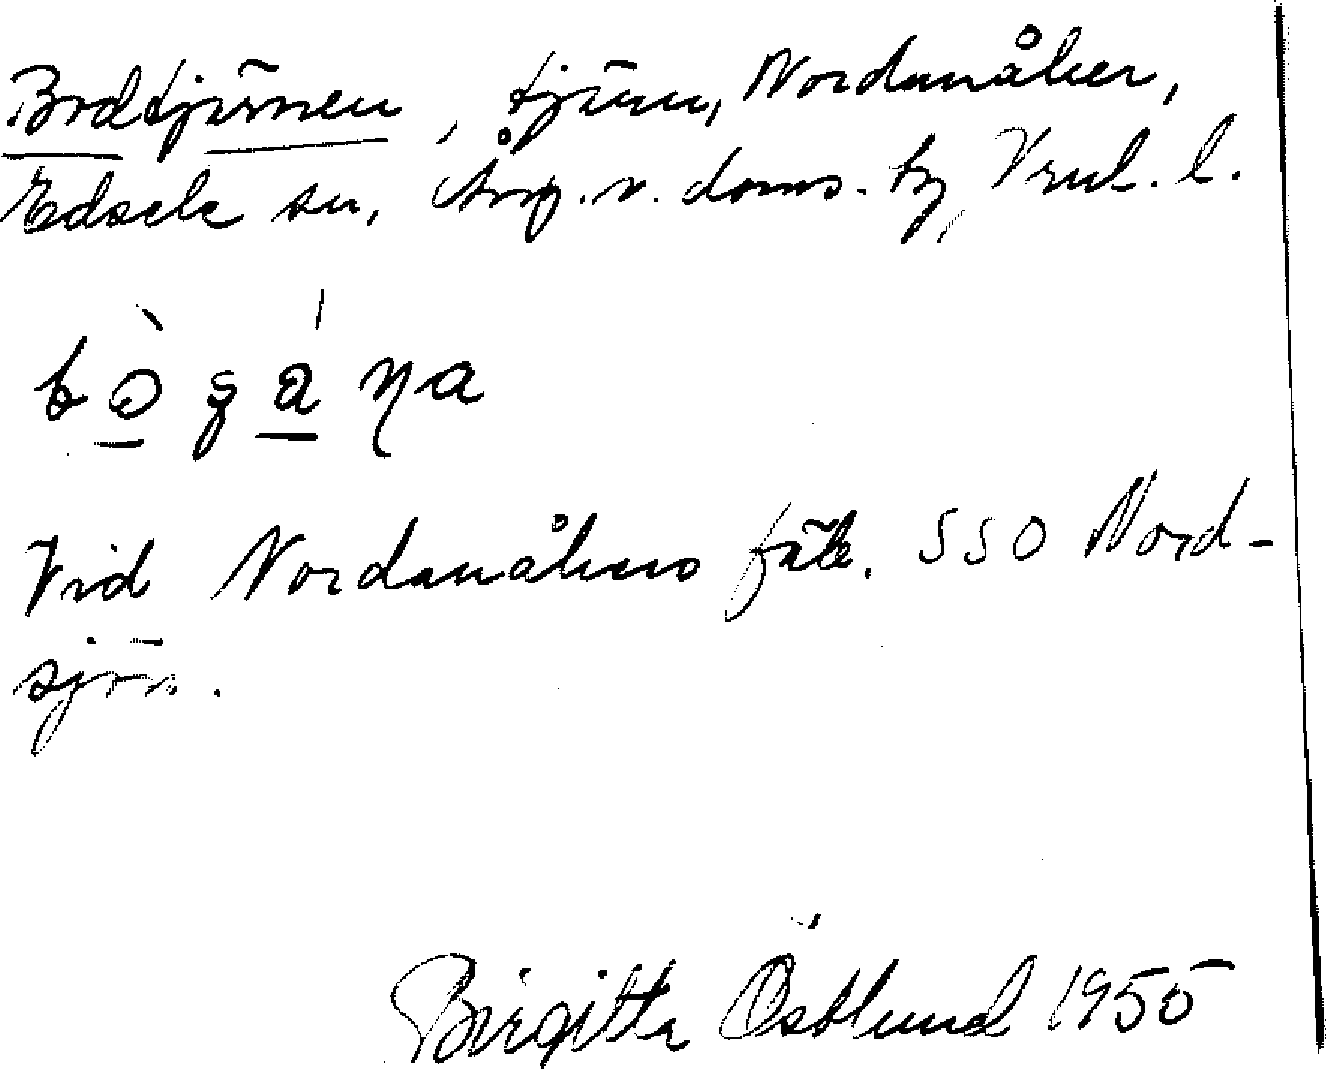 Bodtjärnen, tjärn, Nordanåker,
Edsele sn, Ång. v. doms. by, Vnl. l.
bò̱ʂáṉa
Vid Nordanåkers fäb. SSO Nord-
sjön.
Birgitta Östlund 1955